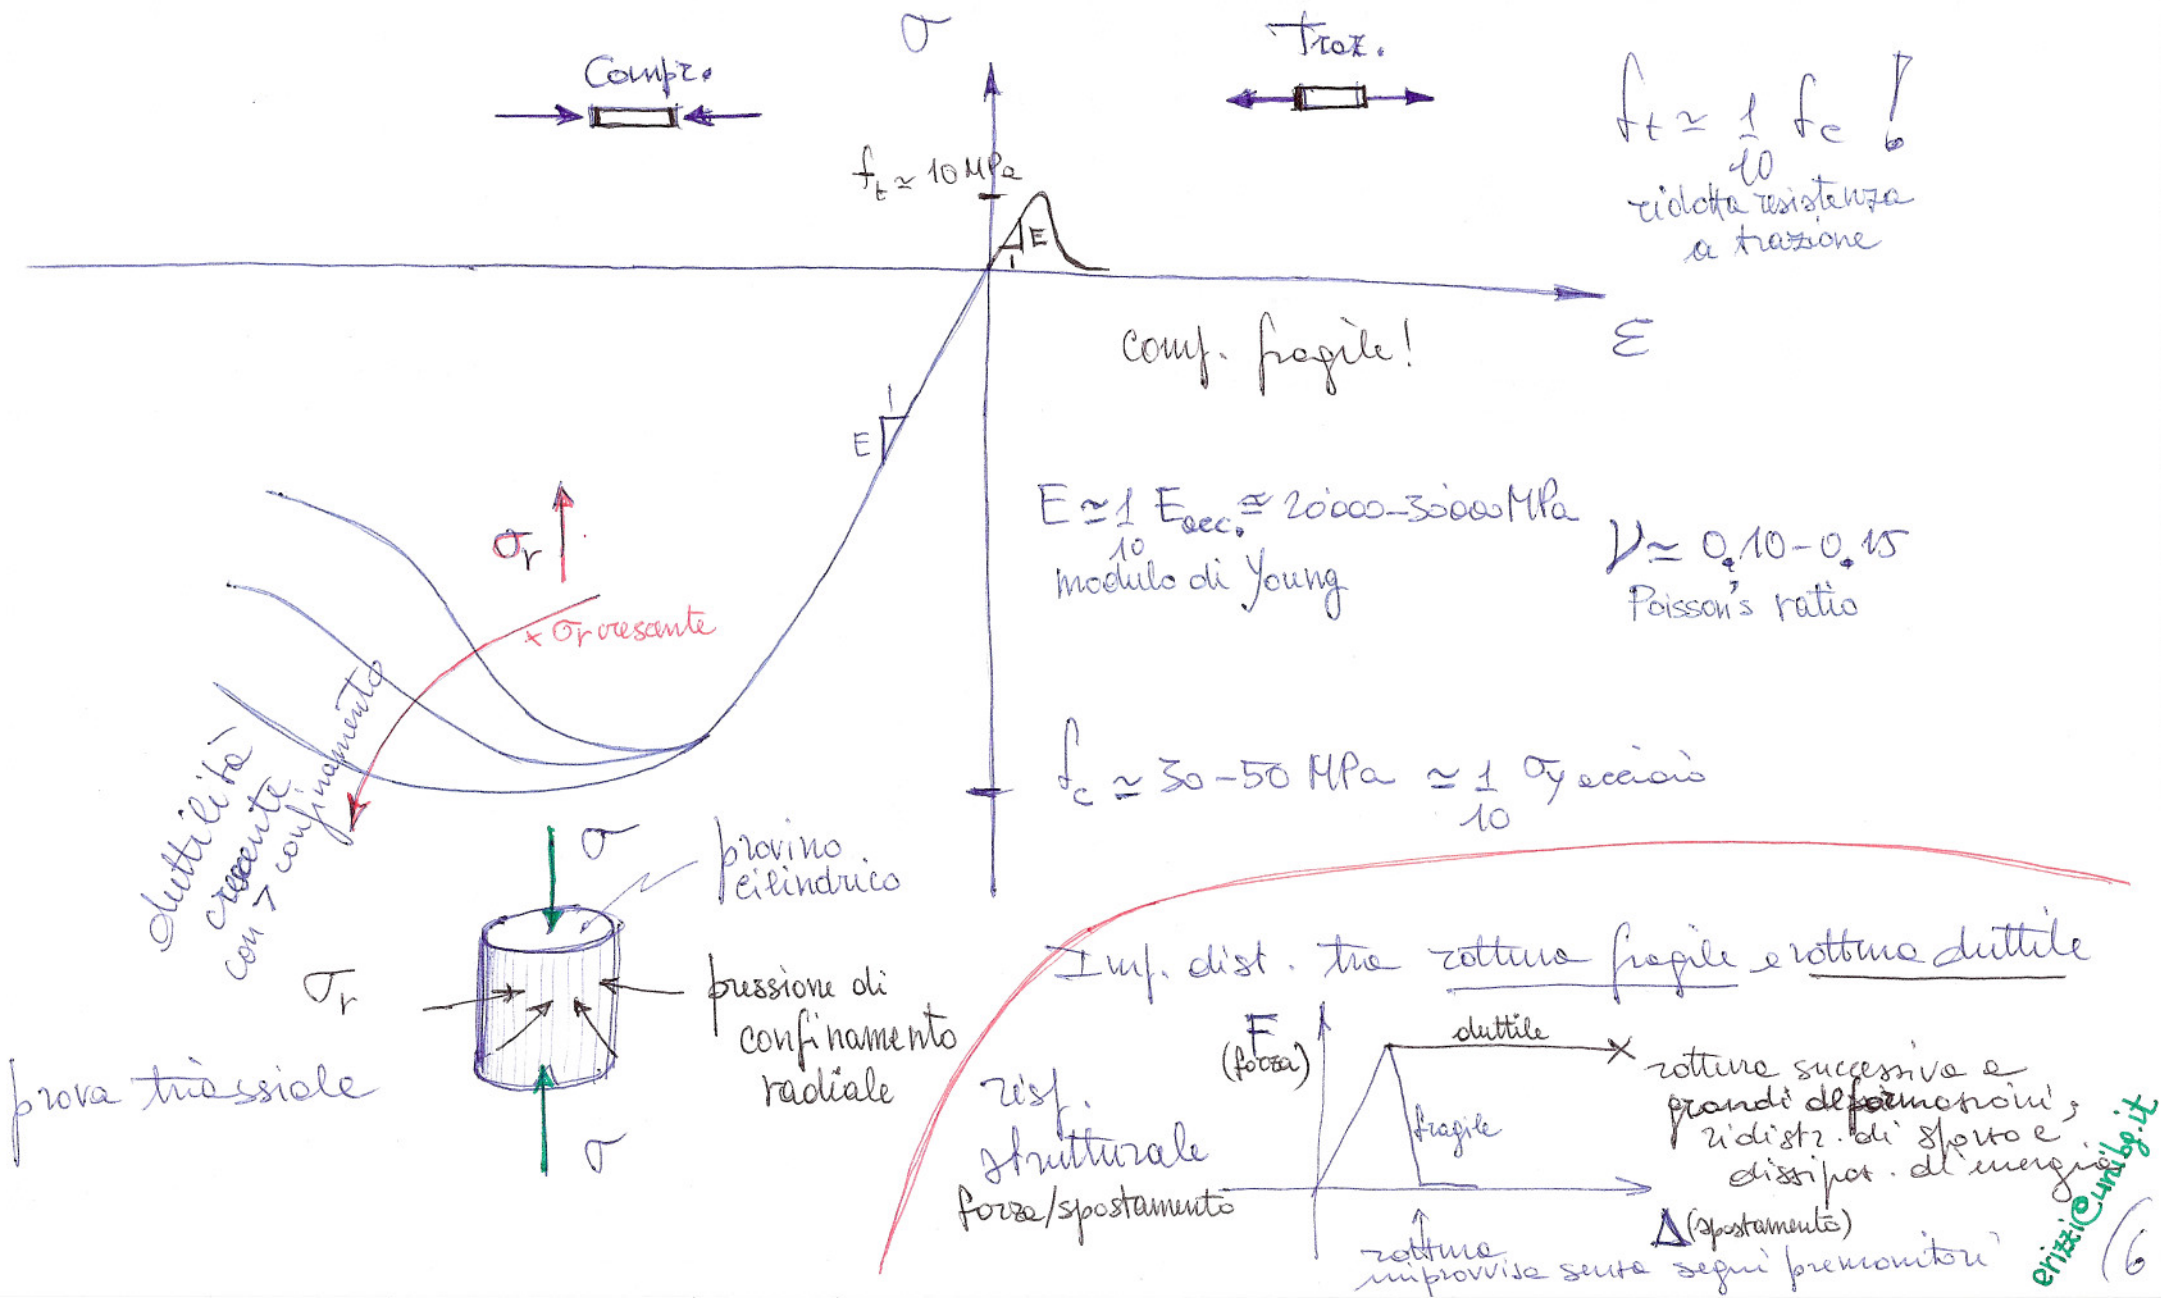 σ
Compr.
Traz.
f_t ≃ 10 MPa
f_t ≃ 1/10 f_c !
ridotta resistenza
a trazione
E
1
ε
comp. fragile!
1
E
E ≃ 1/10 E_acc. ≃ 20'000-30'000 MPa
modulo di Young
ν ≃ 0.10-0.15
Poisson's ratio
σ_r
x σ_r crescente
duttilità
crescente
con > confinamento
f_c ≃ 30-50 MPa ≃ 1/10 σ_y acciaio
σ
provino
cilindrico
σ_r
pressione di
confinamento
radiale
prova triassiale
σ
Imp. dist. tra rottura fragile e rottura duttile
F
(forza)
duttile
fragile
risp.
strutturale
forza/spostamento
rottura successiva a
grandi deformazioni,
ridistr. di sforzo e
dissipaz. di energia
Δ (spostamento)
rottura
improvvisa senza segni premonitori
erizzi@unibg.it
(6